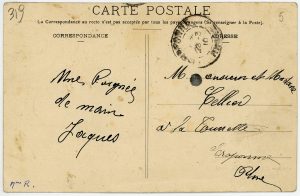 319
CARTE POSTALE
5
La Correspondance au recto n'est pas acceptée par tous les pays étrangers (Se renseigner à la Poste).
CORRESPONDANCE
ADRESSE
Une Poignée
de main
Jacques
Monsieur et Madame
Tellier
à la
Oise